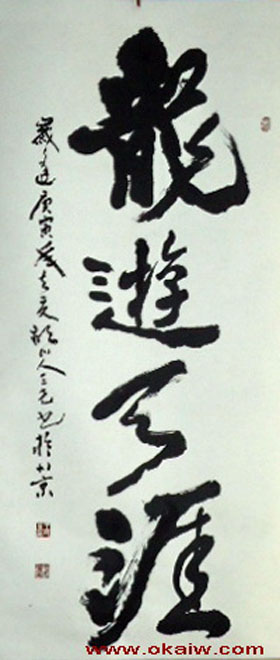 龍遊天涯
歲逢庚寅
人三元書於北京
www.okaiw.com